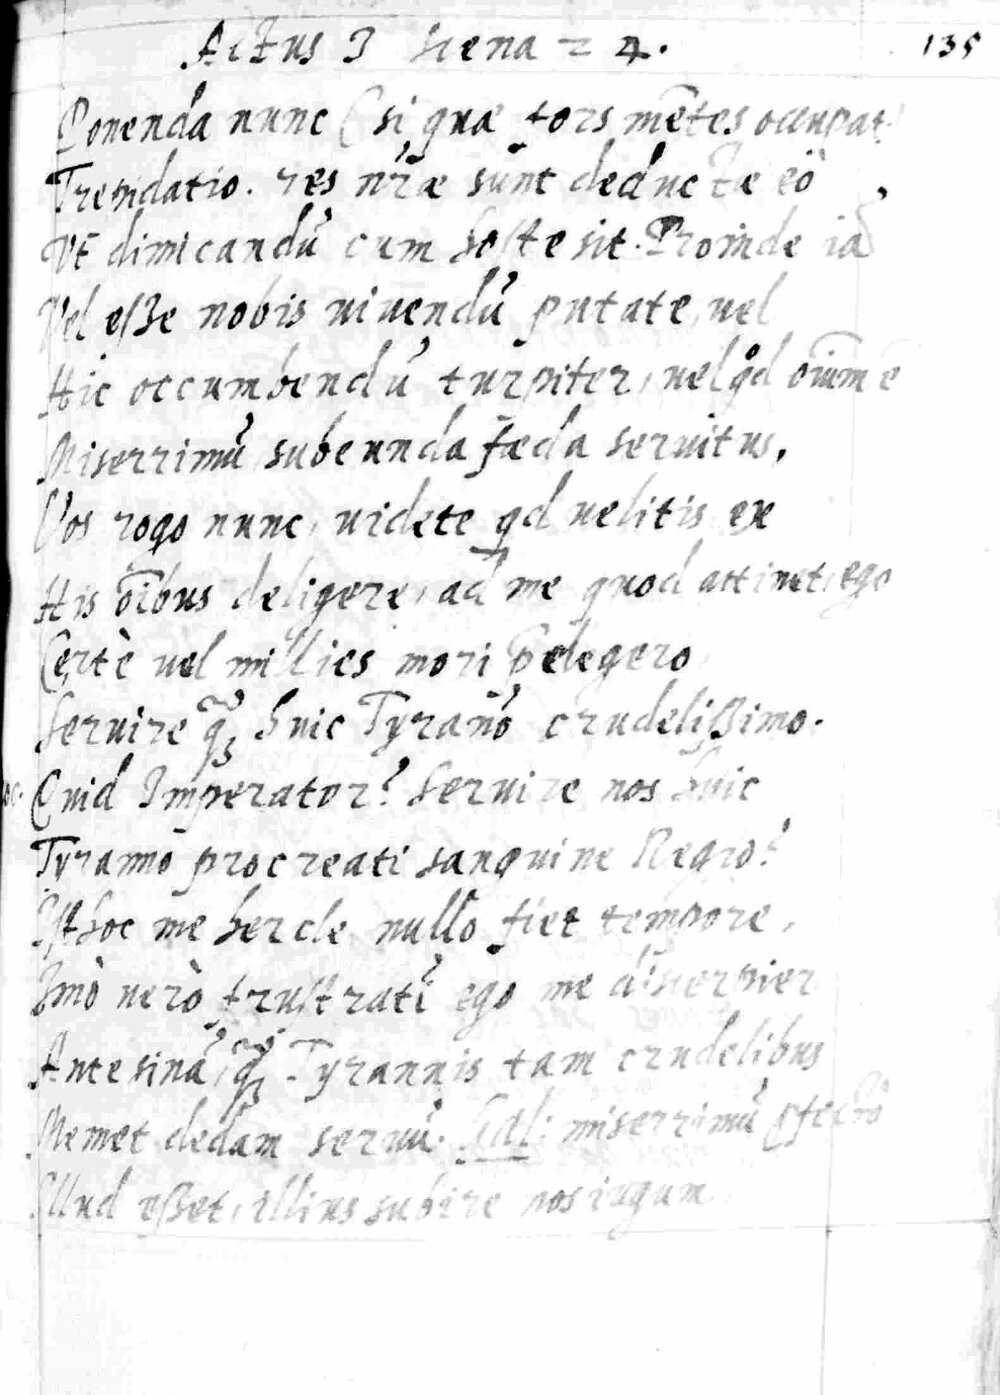 Actus 3 scena = 4. 135
Ponenda nunc (si quæ fors mẽtes occupat)
Trepidatio. res nr̃æ sunt deductæ eò
Vt dimicandũ cum hoste sit. Proinde iã
Vel eße nobis uiuendũ putate, uel
Hic occumbendũ turpiter, uel qd oĩum ẽ
Miserrimũ subeunda fæda seruitus.
Vos rogo nunc, uidete qd uelitis ex
His oĩbus deligere, ad me quod attinet, ego
Certè uel millies mori p̃elegero,
Seruire q̃ꝫ huic Tyrañò crudelißimo.
Quid Imperator? Seruire nos huic
Tyranno procreati sanguine Regio?
Isthoc me hercle nullo fiet tempore,
Imò uerò frustratĩ ego me discerpier
Ante sinã, q̃ꝫ Tyrannis tam crudelibus
Memet dedam seruũ. miserrimũ ꝓfectò
Illud eßet, illius subire nos iugum.